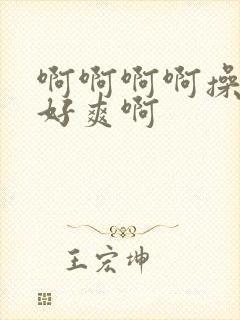 啊啊啊啊操
好爽啊
王宏坤